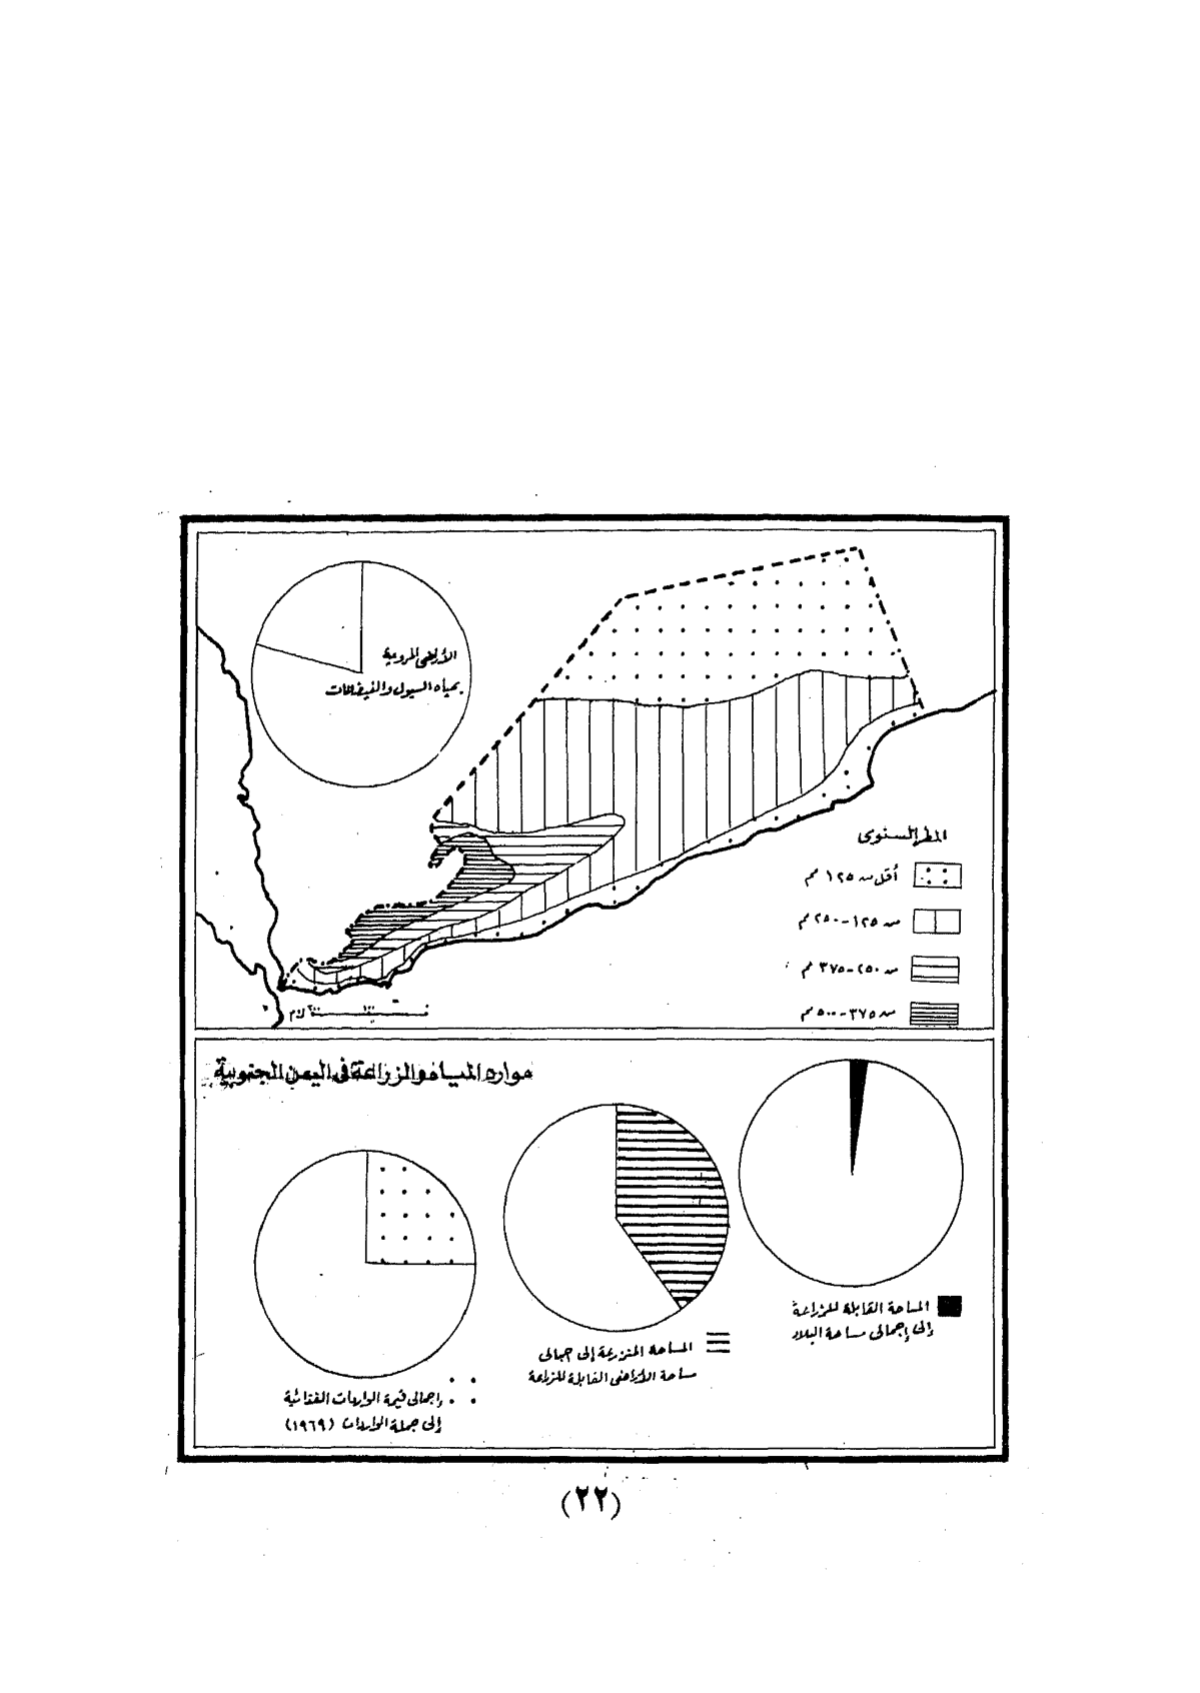 الأراضى المروية
بمياه السيول والفيضانات
المطر السنوى
أقل من ١٢٥ مم
من ١٢٥-٢٥٠ مم
من ٢٥٠-٣٧٥ مم
من ٣٧٥-٥٠٠ مم
١٠٠ ٢٠٠ ك.م
موارد المياه والزراعة فى اليمن الجنوبية
المساحة القابلة للزراعة
إلى إجمالى مساحة البلاد
المساحة المنزرعة إلى جمالى
مساحة الأراضى القابلة للزراعة
إجمالى قيمة الواردات الغذائية
إلى جملة الواردات (١٩٦٩)
(٢٢)